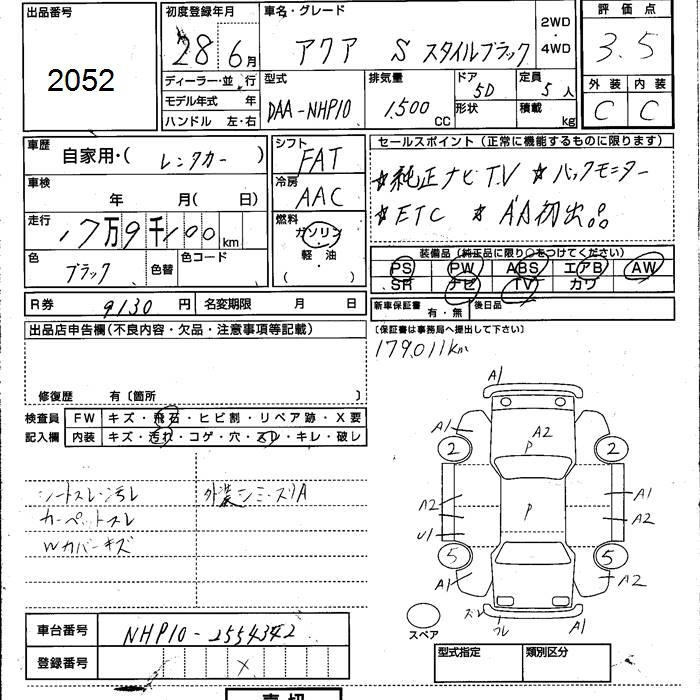 出品番号
2052
初度登録年月
28年6月
ディーラー・並行
モデル年式 年
ハンドル 左・右
車名・グレード
アクア S スタイルブラック
2WD
・
4WD
型式
DAA-NHP10
排気量
1,500
CC
ドア
5D
形状
定員
5人
積載
kg
評価点
3.5
外装
内装
C
C
車歴
自家用・(レンタカー)
車検
年 月(日)
走行
17万9千100km
色
ブラック
色替
色コード
シフト
FAT
冷房
AAC
燃料
ガソリン
・
軽・油
セールスポイント(正常に機能するものに限ります)
☆純正ナビTV ☆バックモニター
☆ETC ☆AA初出。。
装備品(純正品に限り○をつけてください)
PS PW ABS エアB AW
SR ナビ TV カワ
R券 9130円
名変期限 月 日
新車保証書 有・無
後日品
出品店申告欄(不良内容・欠品・注意事項等記載)
(保証書は事務局へ提出して下さい)
179,011km
修復歴 有〔箇所 〕
検査員
記入欄
FW キズ・飛石・ヒビ割・リペア跡・X要
内装 キズ・汚れ・コゲ・穴・スレ・キレ・破レ
シートスレ・汚レ
カーペットスレ
Wカバーキズ
外装シミ・スリA
A1
A1
A2
P
A1
2
2
A2
P
A1
U1
A2
5
5
A1
A2
ズレ
フレ
A1
スペア
車台番号
NHP10-2554342
登録番号
X
型式指定
類別区分